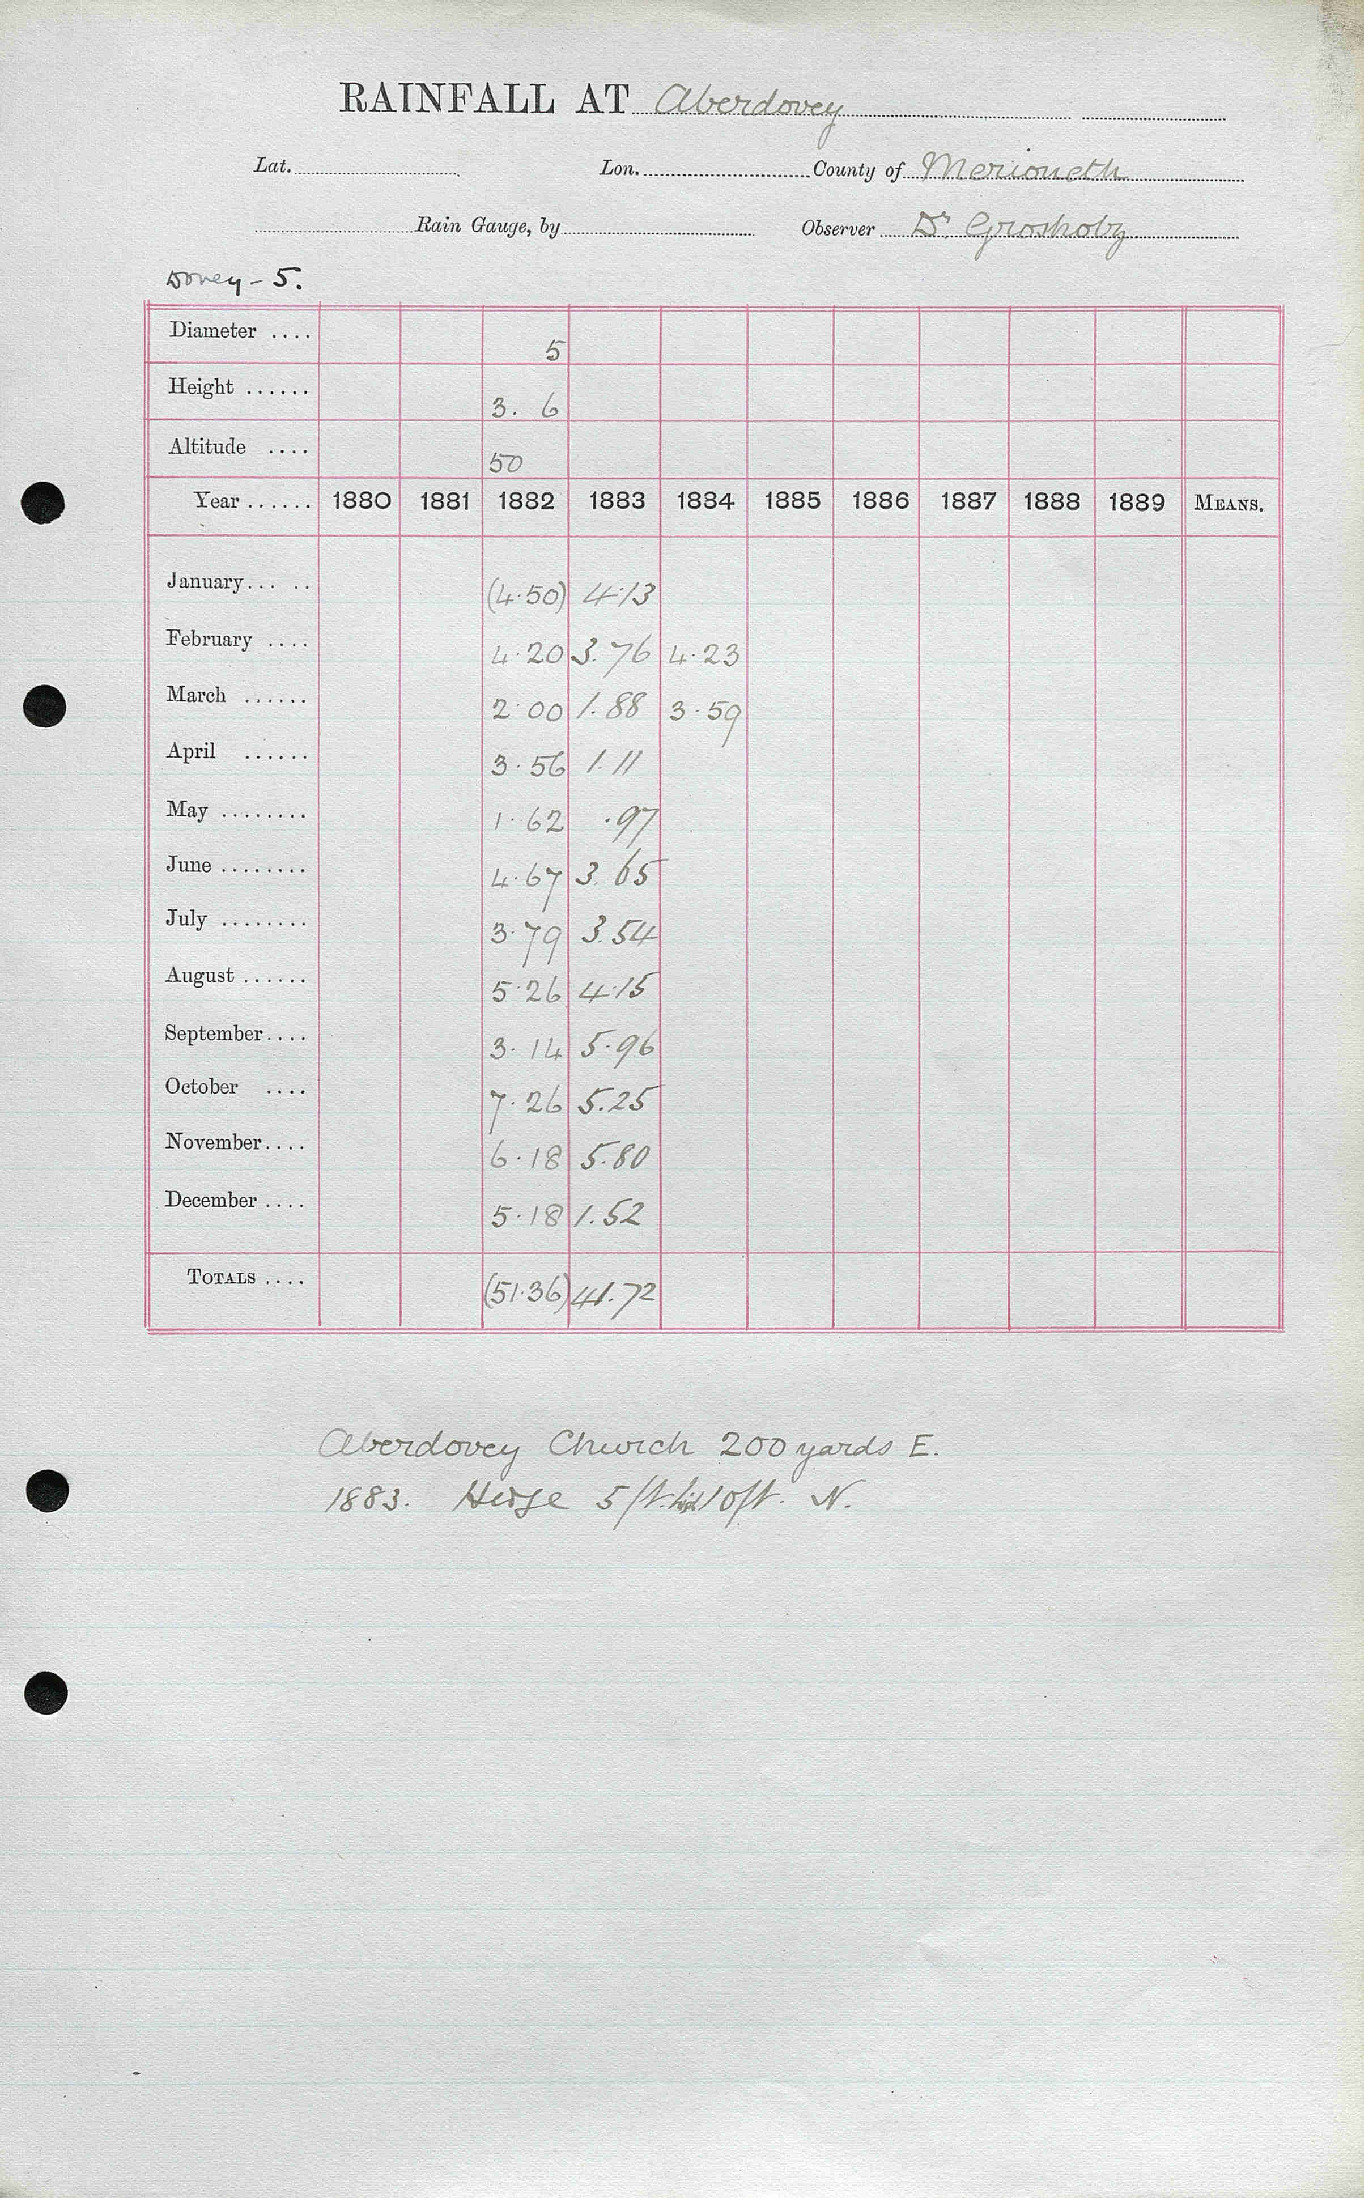 RAINFALL AT Aberdovey
Lat. Lon. County of Merioneth
Rain Gauge, by Observer Dr. Grosholz
Dovey - 5.
Diameter .... 5
Height ...... 3. 6
Altitude .... 50
Year ...... 1880 1881 1882 1883 1884 1885 1886 1887 1888 1889 MEANS.
January... .. (4.50) 4.13
February .... 4.20 3.76 4.23
March ...... 2.00 1.88 3.59
April ...... 3.56 1.11
May ........ 1.62 .97
June ........ 4.67 3.65
July ........ 3.79 3.54
August ...... 5.26 4.15
September.... 3.14 5.96
October .... 7.26 5.25
November.... 6.18 5.80
December .... 5.18 1.52
TOTALS .... (51.36) 41.72
Aberdovey Church 200 yards E.
1883. Hedge 5 ft. high 10 ft. N.